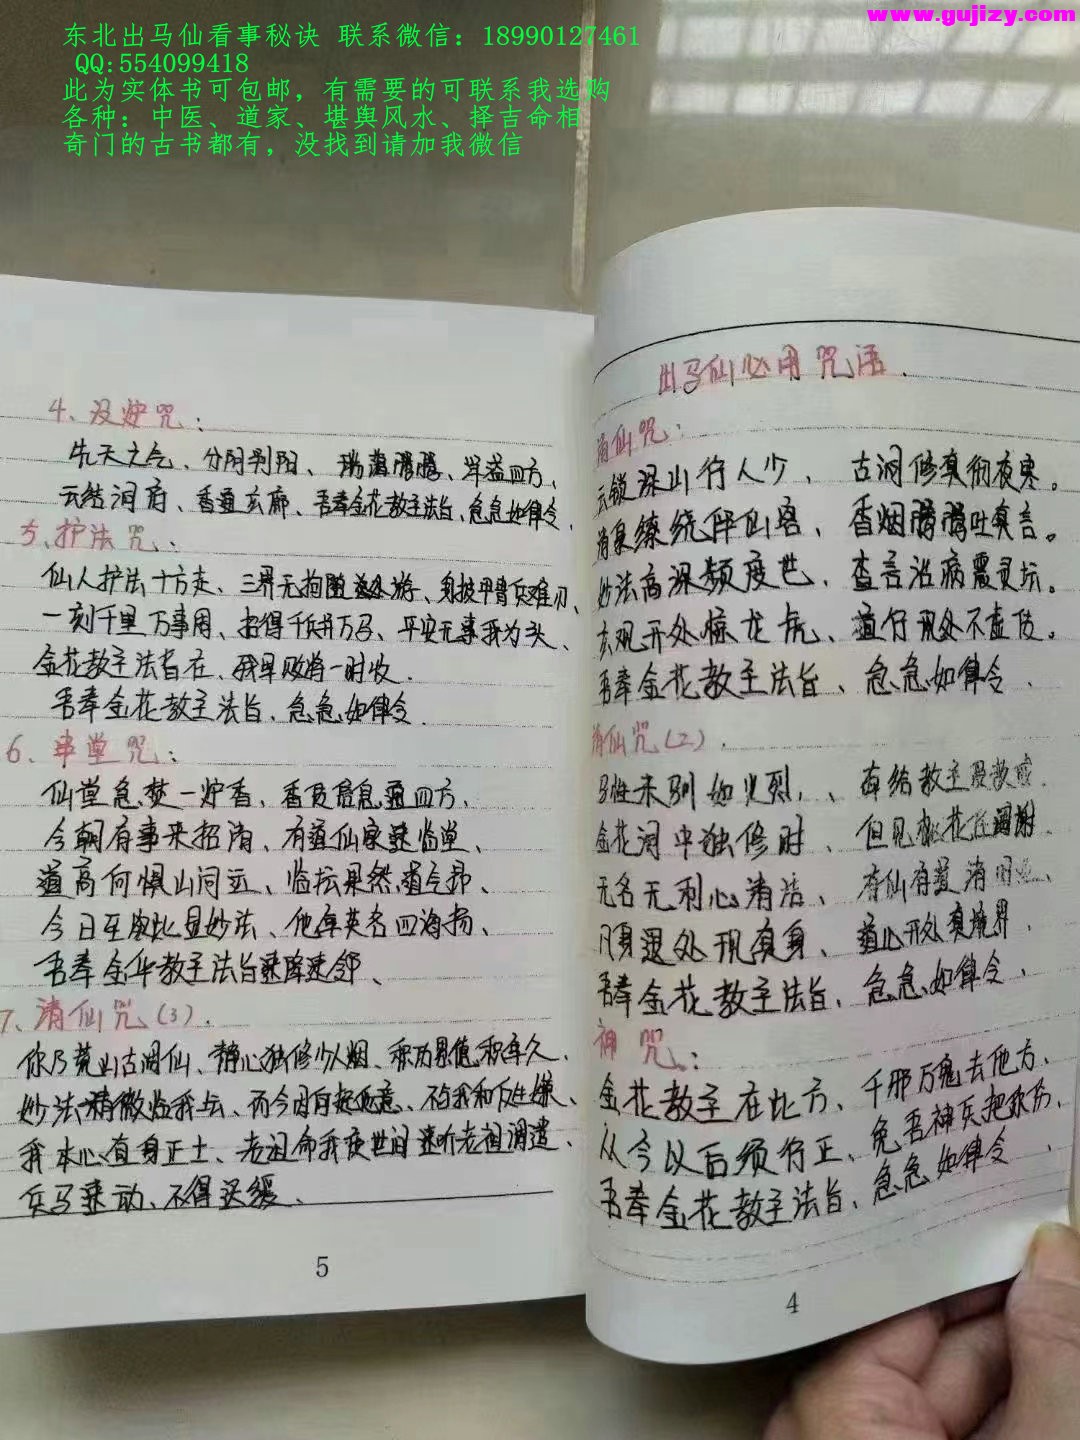 www.gujizy.com
东北出马仙看事秘诀 联系微信：18990127461
QQ:554099418
此为实体书可包邮，有需要的可联系我选购
各种：中医、道家、堪舆风水、择吉命相
奇门的古书都有，没找到请加我微信
4、设炉咒：
先天之气、分阴判阳、瑞蔼腾腾、祥益四方、
云结洞府、香通玄廊、吾奉金花教主法旨、急急如律令、
5、护法咒、
仙人护法十方走、三界无拘随处游、身披甲胄兵难刃、
一刻千里万事周、招得千兵并万马、平安无事我为头、
金花教主法旨在、残旱败将一时收.
吾奉金花教主法旨、急急如律令.
6、串堂咒：
仙堂急焚一炉香、香信息通四方、
今朝有事来招请、有道仙家速临堂、
道高何惧山河远、临坛果然道气昂、
今日至此显妙法、他年英名四海扬、
吾奉金华教主法旨速降速邻、
7、清仙咒(3).
你乃荒山古洞仙、静心独修少人烟、积功累德积年久、
妙法精微临我坛、
我本心直身正士、老祖命我度世间速听老祖调遣、
兵马速动、不得迟缓、
5
出马仙必用咒语.
清仙咒：
云锁深山行人少、 古洞修真彻夜寒。
缭绕伴仙客、 香烟腾腾吐真言。
妙法高深频度世、 查言治病震灵坛。
玄观开处惊龙虎、 道行现处不虚传。
吾奉金花教主法旨、 急急如律令.
清仙咒(2).
金花洞中独修时、 但见桃花
无名无利心清洁、 有仙有道清
凡身退处现真身、 道心开处真境界.
吾奉金花教主法旨、 急急如律令、
神咒：
金花教主在此方、千邪万鬼去他方、
从今以后须行正、免吾神兵把你伤、
吾奉金花教主法旨、急急如律令、
4